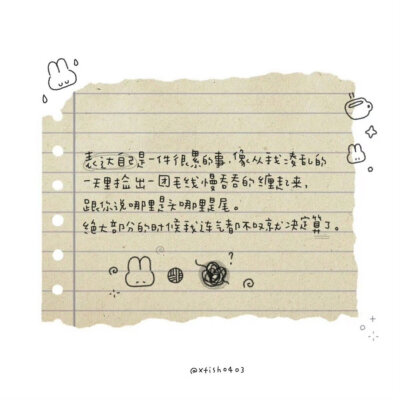 表达自己是一件很累的事,像从我凌乱的
一天里捡出一团毛线慢吞吞的缠起来,
跟你说哪里是头哪里是尾。
绝大部分的时候我连气都不叹就决定算了。
?
@xtish0403